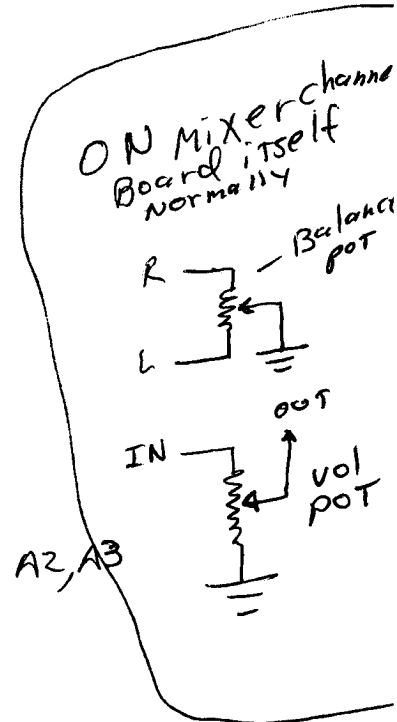 ON Mixer channe
Board itself
Normally
R
Balance
pot
L
OUT
IN
vol
POT
A2, A3